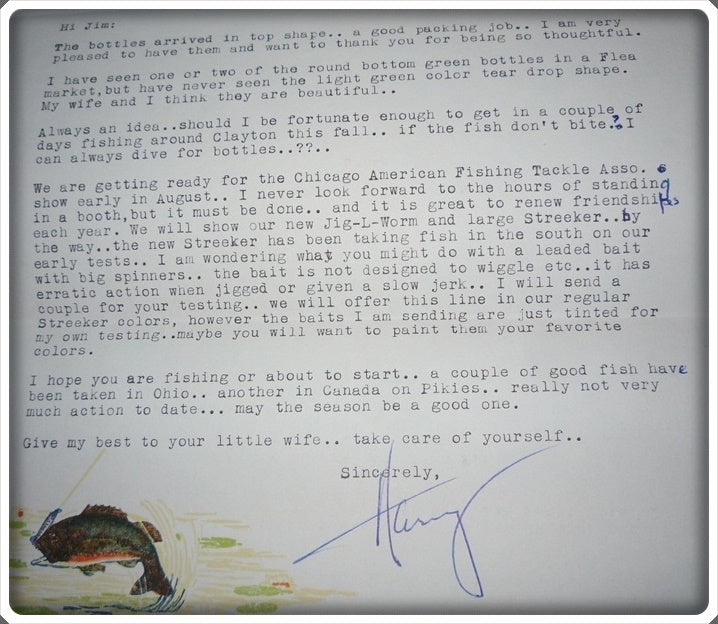 Hi Jim:
The bottles arrived in top shape.. a good packing job.. I am very
pleased to have them and want to thank you for being so thoughtful.
I have seen one or two of the round bottom green bottles in a Flea
market,but have never seen the light green color tear drop shape.
My wife and I think they are beautiful..
Always an idea..should I be fortunate enough to get in a couple of
days fishing around Clayton this fall.. if the fish don't bite.? I
can always dive for bottles..??..
We are getting ready for the Chicago American Fishing Tackle Asso. s
show early in August.. I never look forward to the hours of standing
in a booth,but it must be done.. and it is great to renew friendships
each year. We will show our new Jig-L-Worm and large Streeker..by
the way..the new Streeker has been taking fish in the south on our
early tests.. I am wondering what you might do with a leaded bait
with big spinners.. the bait is not designed to wiggle etc..it has
erratic action when jigged or given a slow jerk.. I will send a
couple for your testing.. we will offer this line in our regular
Streeker colors, however the baits I am sending are just tinted for
my own testing..maybe you will want to paint them your favorite
colors.
I hope you are fishing or about to start.. a couple of good fish have
been taken in Ohio.. another in Canada on Pikies.. really not very
much action to date... may the season be a good one.
Give my best to your little wife.. take care of yourself..
Sincerely,
Harry